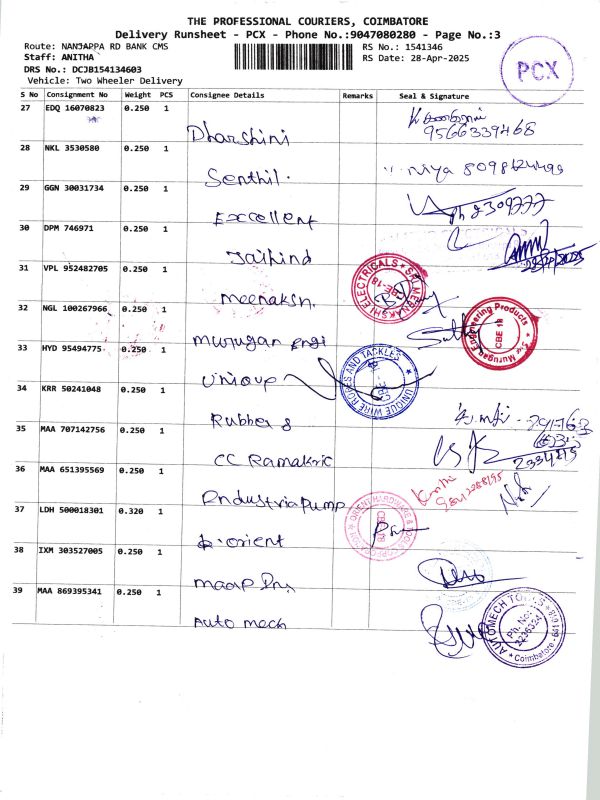 THE PROFESSIONAL COURIERS, COIMBATORE
Delivery Runsheet - PCX - Phone No.:9047080280 - Page No.:3
Route: NANJAPPA RD BANK CMS
RS No.: 1541346
Staff: ANITHA
RS Date: 28-Apr-2025
DRS No.: DCJB154134603
Vehicle: Two Wheeler Delivery
PCX
S No Consignment No Weight PCS Consignee Details Remarks Seal & Signature
27 EDQ 16070823 0.250 1 Dharshini
9566339468
28 NKL 3530580 0.250 1 Senthil.
29 GGN 30031734 0.250 1 Excellent
30 DPM 746971 0.250 1 Jaihind
31 VPL 952482705 0.250 1 Meenaksh.
32 NGL 100267966 0.250 1 Murugan Engi
Sri Murugan Engineering Products CBE 18
33 HYD 95494775 0.250 1 Unique
UNIQUE WIRE ROPES AND TACKLES
34 KRR 50241048 0.250 1 Rubber &
35 MAA 707142756 0.250 1 CC Ramakric
2334215
36 MAA 651395569 0.250 1 Industria Pump
37 LDH 500018301 0.320 1 orient
38 IXM 303527005 0.250 1
39 MAA 869395341 0.250 1 Auto mech
AUTOMECH TOOLS
Ph. No.:
2236324
Coimbatore